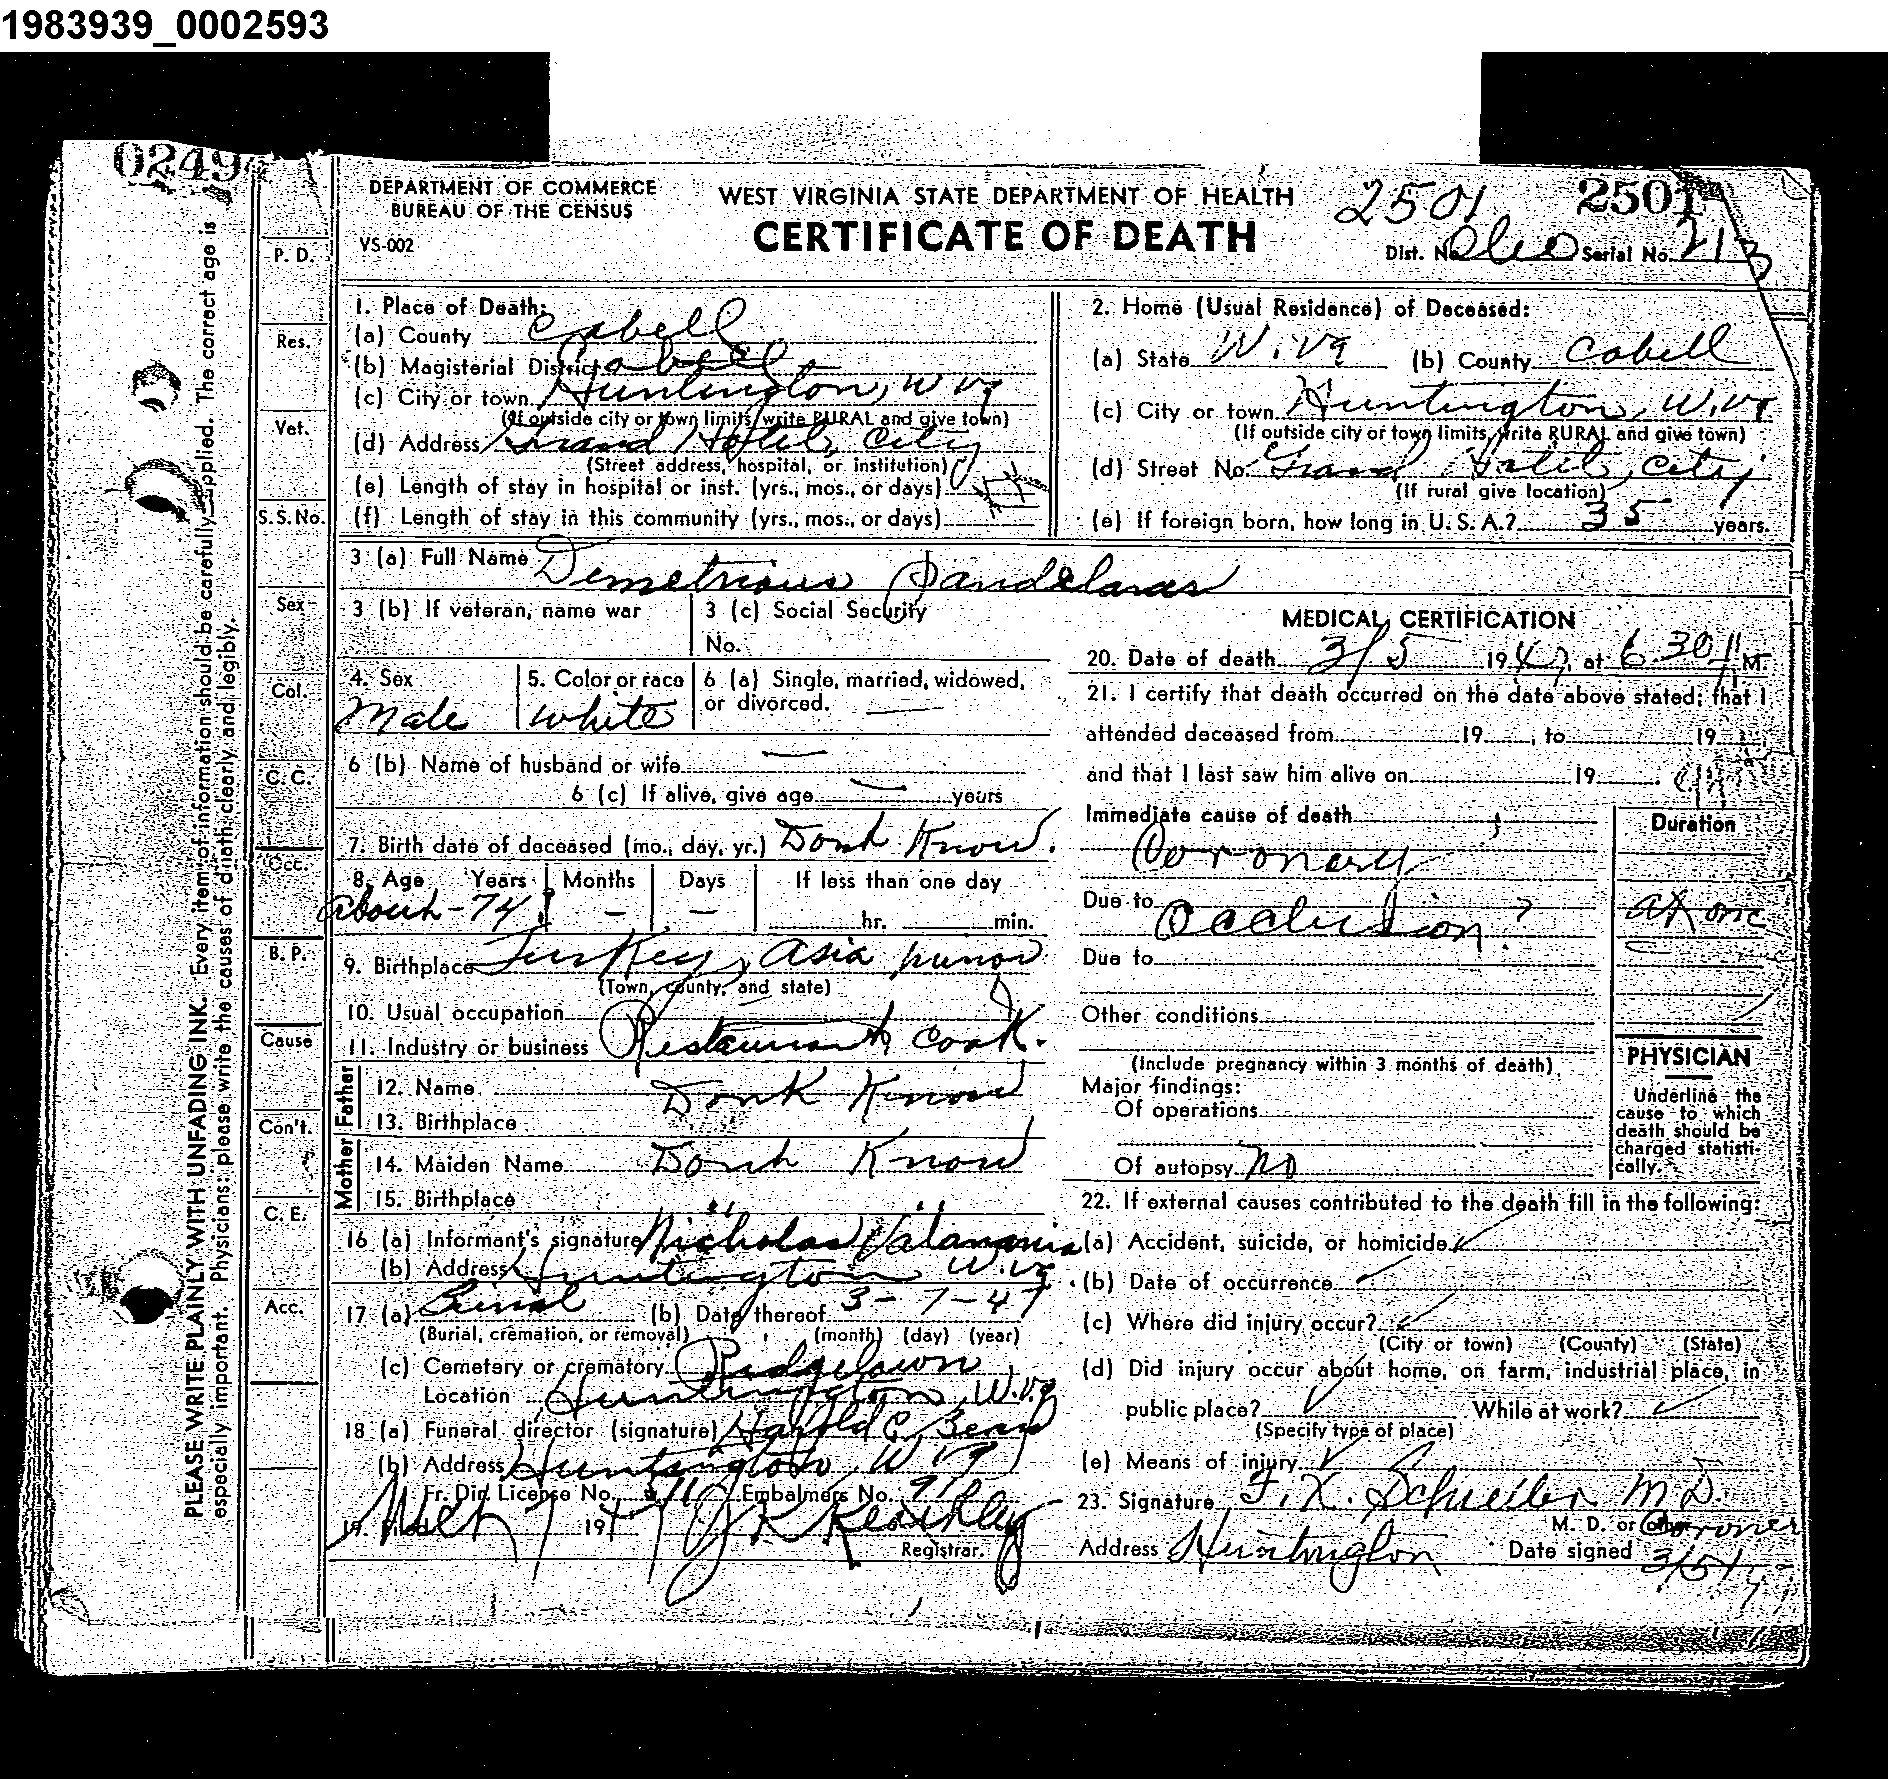 1983939_0002593
0249
DEPARTMENT OF COMMERCE
BUREAU OF THE CENSUS
VS-002
WEST VIRGINIA STATE DEPARTMENT OF HEALTH
CERTIFICATE OF DEATH
2501 2501
Dist. No. Serial No. 213
PLEASE WRITE PLAINLY WITH UNFADING INK. Every item of information should be carefully supplied. The correct age is
especially important. Physicians: please write the causes of death clearly and legibly.
P. D.
Res.
Vet.
S. S. No.
Sex
Col.
C. C.
Occ.
B. P.
Cause
Con't.
C. E.
Acc.
1. Place of Death:
(a) County Cabell
(b) Magisterial District Cabell
(c) City or town Huntington, W Va
(If outside city or town limits, write RURAL and give town)
(d) Address Grand Hotel, City
(Street address, hospital, or institution)
(e) Length of stay in hospital or inst. (yrs., mos., or days)
(f) Length of stay in this community (yrs., mos., or days)
2. Home (Usual Residence) of Deceased:
(a) State W. Va (b) County Cabell
(c) City or town Huntington, W. Va
(If outside city or town limits, write RURAL and give town)
(d) Street No. Grand Hotel, City
(If rural give location)
(e) If foreign born, how long in U. S. A.? 35 years.
3 (a) Full Name Demetrious Pandelaras
3 (b) If veteran, name war
3 (c) Social Security
No.
4. Sex
Male
5. Color or race
White
6 (a) Single, married, widowed,
or divorced. —
6 (b) Name of husband or wife —
6 (c) If alive, give age — years
7. Birth date of deceased (mo., day, yr.) Dont Know.
8. Age Years Months Days If less than one day
about - 74 - - hr. min.
9. Birthplace Turkey, Asia minor
(Town, county, and state)
10. Usual occupation
11. Industry or business Restaurant Cook.
Father
12. Name Dont Know
13. Birthplace
Mother
14. Maiden Name Dont Know
15. Birthplace " "
16 (a) Informant's signature Nicholas
(b) Address Huntington W. Va.
17 (a) Burial (b) Date thereof 3-7-47
(Burial, cremation, or removal) (month) (day) (year)
(c) Cemetery or crematory Ridgelawn
Location Huntington, W. Va
18 (a) Funeral director (signature) Harold C. Beard
(b) Address Huntington W Va
Fr. Dir. License No. Embalmers No.
19. Filed Mch 7 1947 J K Keathley
Registrar.
MEDICAL CERTIFICATION
20. Date of death 3/5 1947, at 6.30 P M.
21. I certify that death occurred on the date above stated; that I
attended deceased from 19 , to 19
and that I last saw him alive on 19 .
Immediate cause of death
Coronary
Due to Occlusion ?
Due to
Duration
at once
Other conditions
(Include pregnancy within 3 months of death)
Major findings:
Of operations
Of autopsy no
PHYSICIAN
Underline the
cause to which
death should be
charged statisti-
cally.
22. If external causes contributed to the death fill in the following:
(a) Accident, suicide, or homicide
(b) Date of occurrence
(c) Where did injury occur?
(City or town) (County) (State)
(d) Did injury occur about home, on farm, industrial place, in
public place? While at work?
(Specify type of place)
(e) Means of injury
23. Signature F. X. M.D.
M. D. or other Coroner
Address Huntington Date signed 3/5/47